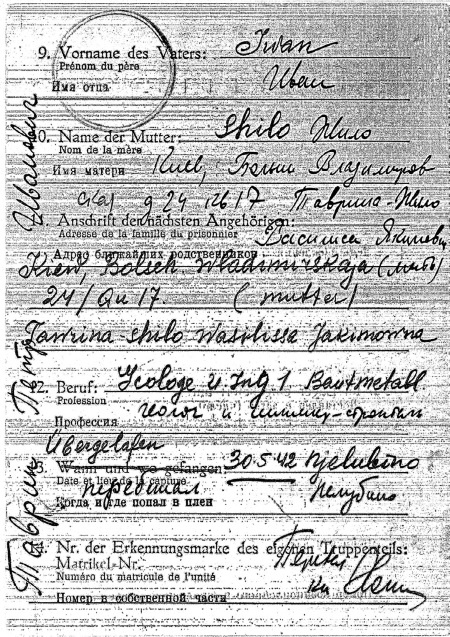 9. Vorname des Vaters: Iwan
Prénom du père
Имя отца Иван
10. Name der Mutter: Shilo Жило
Nom de la mère
Имя матери Киев, Больш. Владимиров
ская д 24 Таврина-Жило
11. Anschrift der nächsten Angehörigen:
Adresse de la famille du prisonnier Василиса Якимовн
Адрес ближайших родственников
Kiew, Bolsch. Wladimirskaja (мать)
24/Qu 17. (mutter)
Tawrina-Shilo Wasilissa Jakimowna
12. Beruf: Geologe u. Ing
Profession
Профессия геолог и
Übergelafen
13. Wann und wo gefangen: 30.5.42
Date et lieu de la capture
перебежал
Когда и где попал в плен
14. Nr. der Erkennungsmarke des eigenen Truppenteils:
Matrikel-Nr.
Numéro du matricule de l'unité
Номер в собственной части
Таврин Петр Иванович